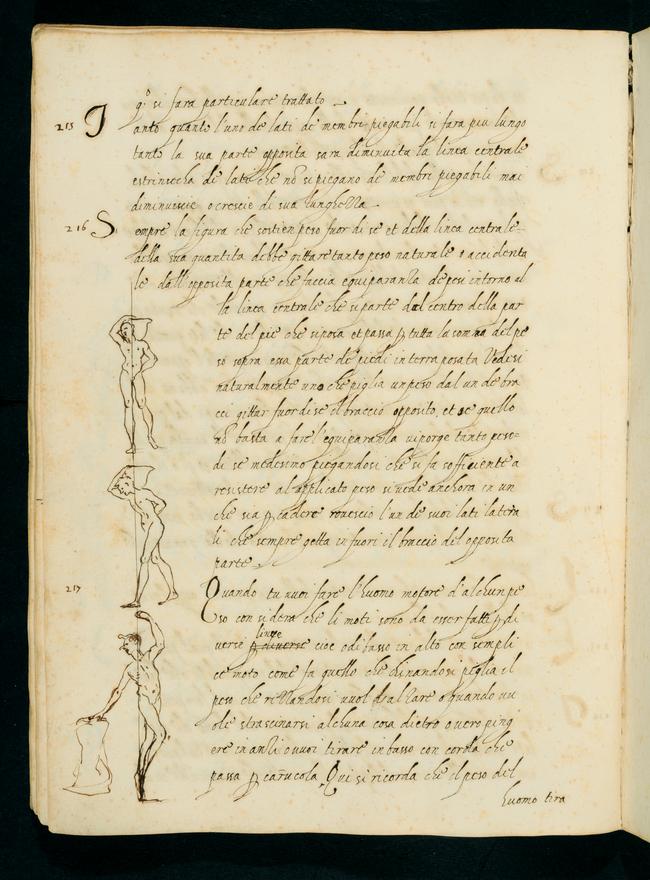 q° si fara particulare trattato
215 Tanto quanto l'uno de lati de membri piegabili si fara piu lungo
tanto la sua parte opposita sara diminuita la linea centrale
estrinsecha de lati che nō si piegano de membri piegabili mai
diminuiscie o crescie di sua lunghezza
216 Sempre la figura che sostien peso fuor di se et della linea centrale
della sua quantita debbe gittare tanto peso naturale o accidenta
le dall'opposita parte che faccia equiparanza de pesi intorno al
la linea centrale che si parte dal centro della par
te del pie che si posa et passa ꝑ tutta la somma del pe
so sopra essa parte de piedi in terra posata Vedesi
naturalmente uno che piglia un peso dal un de bra
cci gittar fuor di se il braccio opposito, et se quello
nō basta a fare l'equiparanza ui porge tanto peso
di se medesimo piegandosi che si fa soffiente a
resistere al applicato peso si uede anchora in un
che sia ꝑ cadere rouescio l'un de suoi lati latera
li che sempre getta in fuori il braccio del opposita
parte
217 Quando tu uuoi fare l'huomo motore d'alchun pe
so considera che li moti sono da esser fatti ꝑ di
verse linee diverse cioe o di basso in alto con sempli
ce moto come fa quello che chinandosi piglia il
peso che rizzandosi uuol alzare o quando uu
ole strascinarsi alchuna cosa dietro o uero ping
ere inanzi o uuoi tirare in basso con corda che
passa ꝑ carrucola Qui si ricorda che el peso del
huomo tira